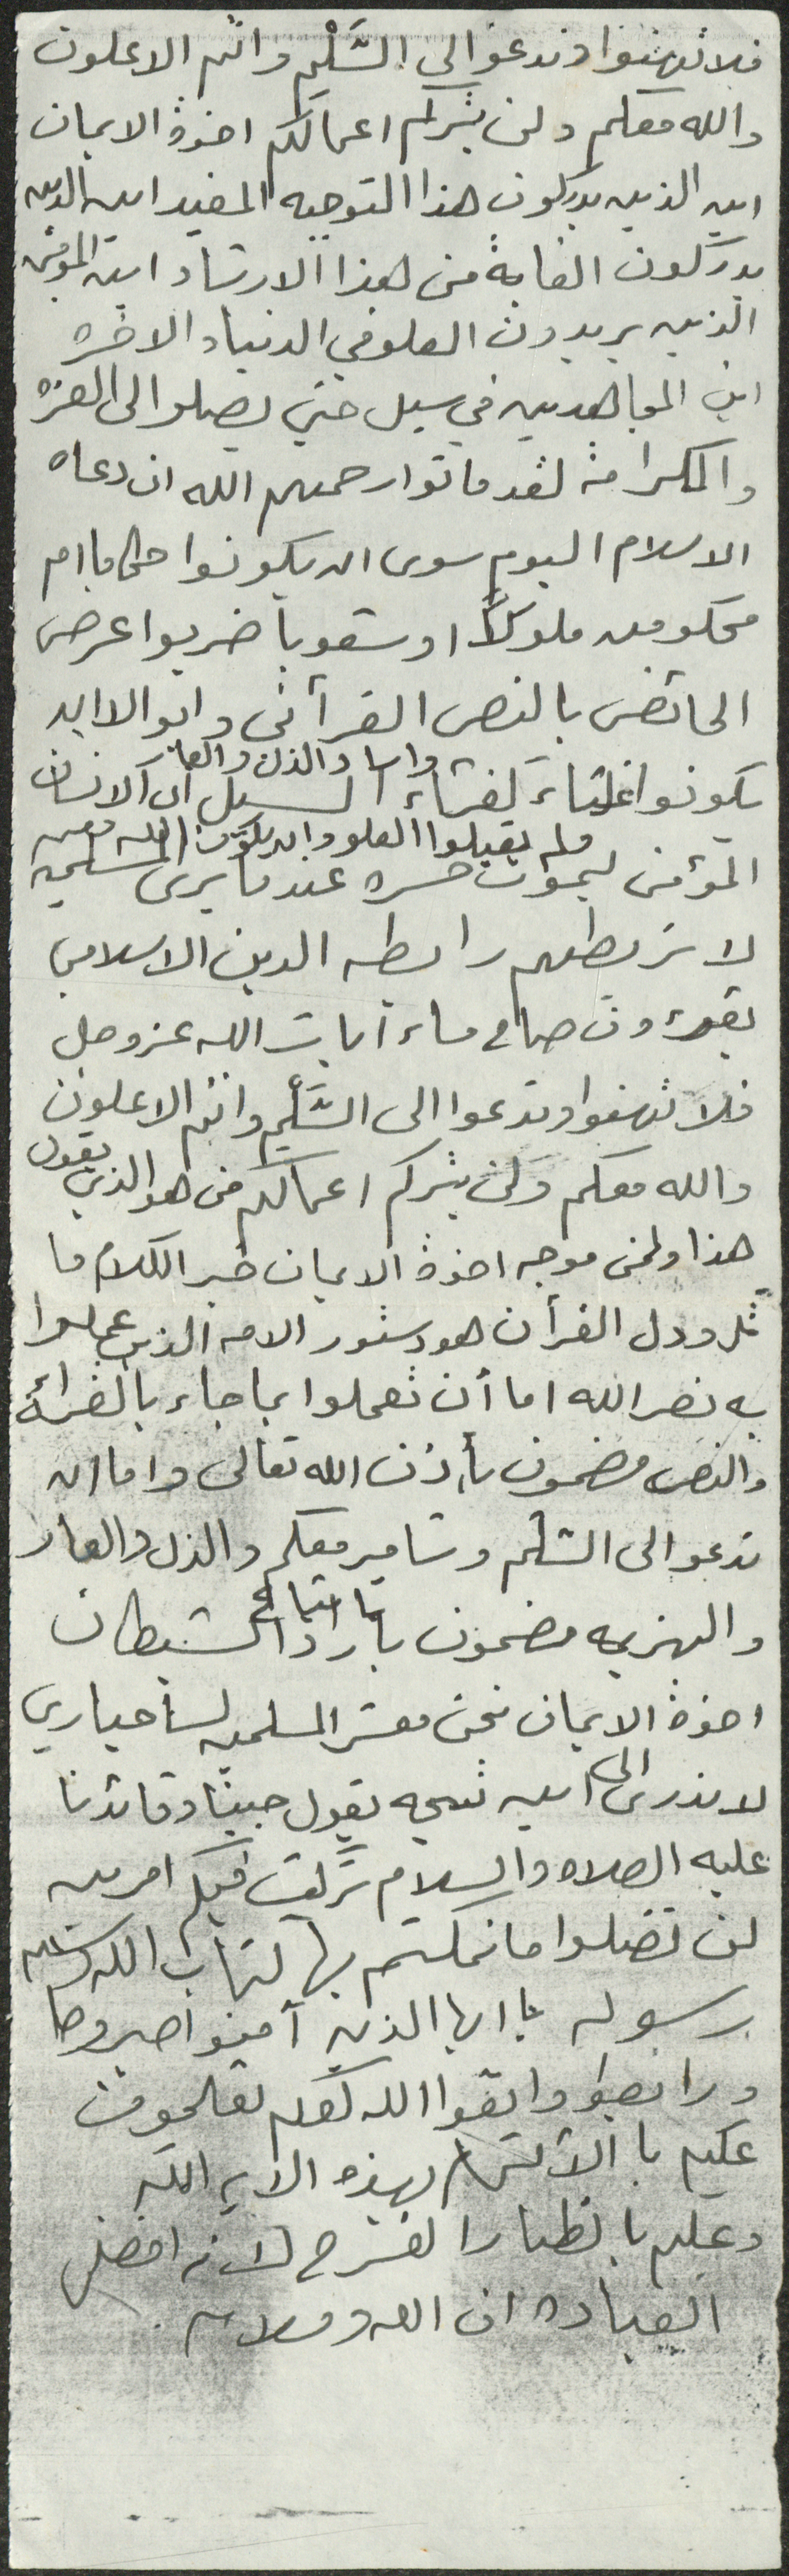 فلا تهنوا وتدعوا الى السَّلْم وانتم الاعلون
والله معكم ولن يتركم اعمالكم اخوة الايمان
اين الذين يدركون هذا التوجيه المفيد اين الذين
يدركون الغاية من هذا الارشاد اين المؤمن
الذين يريدون العلو في الدنيا والاخره
اين المجاهدين في سبيل حتى يصلوا الى العزه
والكرامة لقد ماتوا رحمهم الله ان دعاه
الاسلام اليوم سوى ان يكونوا حكاما ام
محكومين ملوكاً او شعوبا ضربوا عرض
الحائض بالنص القرآني وابوا الا ان
يكونوا غثاء كغثاء السيل ان الانسان
وابا والذل والعا
ولم يقبلوا العلو وان يكون الله معهم
المؤمن ليموت حسره عندما يرى المسلمين
لا تربطهم رابطه الدين الاسلامي
يقرءون صباح مساء آيات الله عز وجل
فلا تهنوا وتدعوا الى السَّلْم وانتم الاعلون
والله معكم ولن يتركم اعمالكم من هو الذي يقول
هذا ولمن موجه اخوة الايمان خير الكلام ما
قل ودل القرآن هو دستور الامه الذين عملوا
به نصر الله اما أن تعملوا بما جاء بالقرآن
والنص مضمون بأذن الله تعالى واما ان
تدعو الى السلم ومصير معكم والذل والعار
والهزيمه مضمون باتباع الشيطان
اخوة الايمان نحن معشر المسلمين لسنا حيارى
لا ندرى الى اين نتجه يقول حبيبنا وقائدنا
عليه الصلاه والسلام تركت فيكم امرين
لن تضلوا ما تمكتم بها كتاب الله وسنه
رسوله يا ايها الذين آمنوا اصبروا وصا
ورابطوا واتقوا الله لعلكم تفلحون
عليكم با الألتزام بهذه الايه الله
وعليكم بانظار الفرح لانه افضل
العباده ان الله وسلامه .